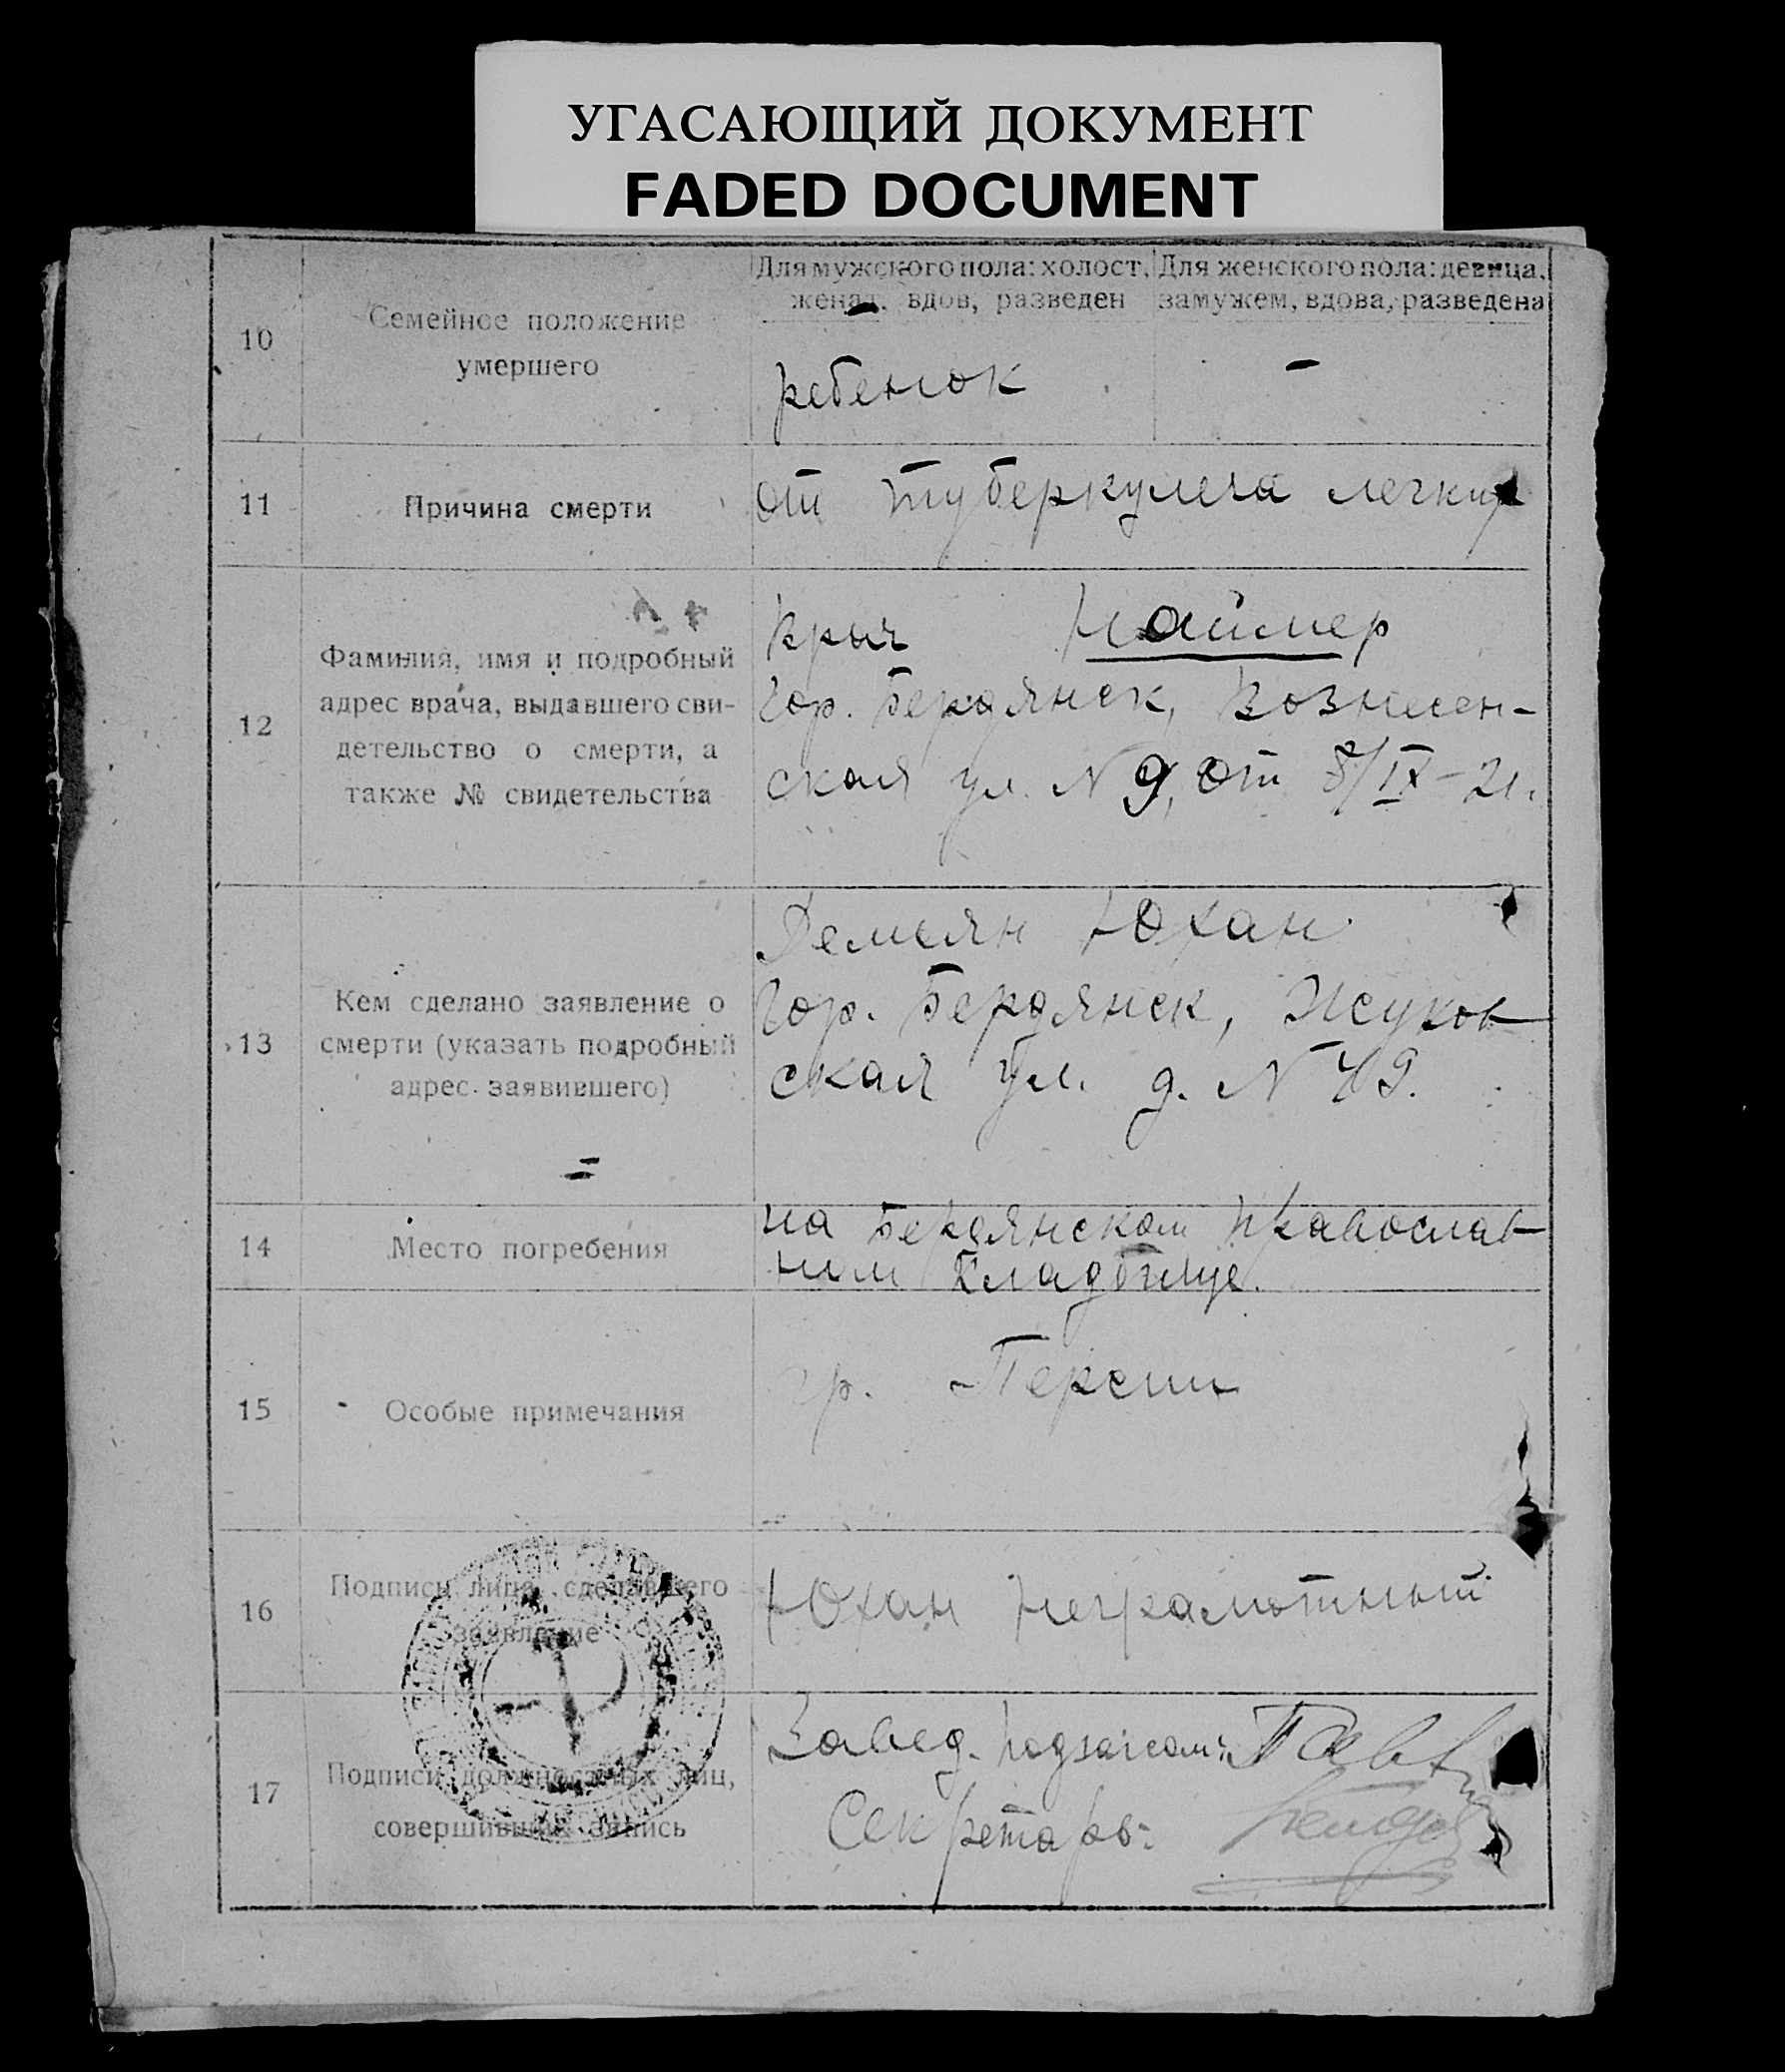 УГАСАЮЩИЙ ДОКУМЕНТ
FADED DOCUMENT
10
Семейное положение
умершего
Для мужского пола: холост,
женат, вдов, разведен
Для женского пола: девица,
замужем, вдова, разведена
ребенок
-
11
Причина смерти
от туберкулеза легких
12
Фамилия, имя и подробный
адрес врача, выдавшего сви-
детельство о смерти, а
также № свидетельства
Наймер
гор. Бердянск, Вознесен-
ская ул. N 9, от 8/IX-21.
13
Кем сделано заявление о
смерти (указать подробный
адрес заявившего)
Демьян Юхан
гор. Бердянск, Жуков
ская ул. д. N 49.
14
Место погребения
на Бердянском православ
ном кладбище.
15
Особые примечания
гр. Персии
16
Подписи лица, сделавшего
заявление
Юхан неграмотный
17
Подписи должностных лиц,
совершивших запись
Завед. подзагсом:
Секретарь: